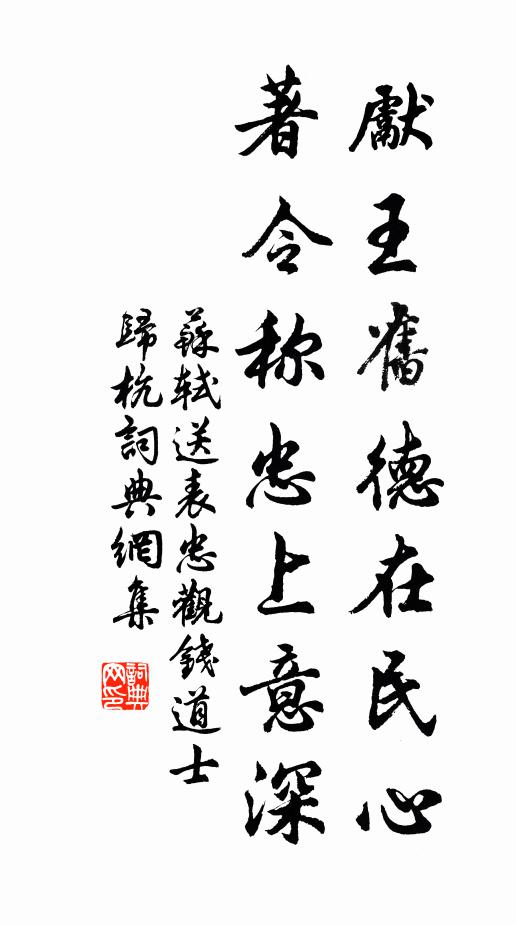 獻王舊德在民心
著令称忠上意深
蘇軾送表忠觀錢道士
歸杭詞典網集
詞典
网印